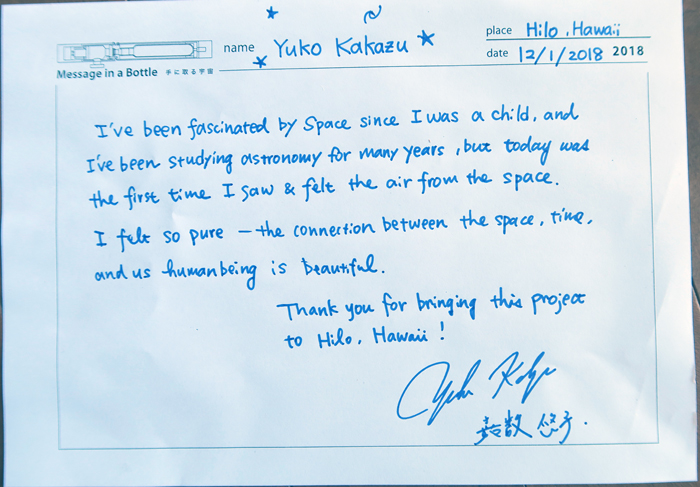 name Yuko Kakazu
place Hilo, Hawaii
date 12/1/2018 2018
Message in a Bottle 手に取る宇宙
I've been fascinated by Space since I was a child, and
I've been studying astronomy for many years, but today was
the first time I saw & felt the air from the space.
I felt so pure — the connection between the space, time,
and us humanbeing is beautiful.
Thank you for bringing this project
to Hilo, Hawaii!
嘉数 悠子.